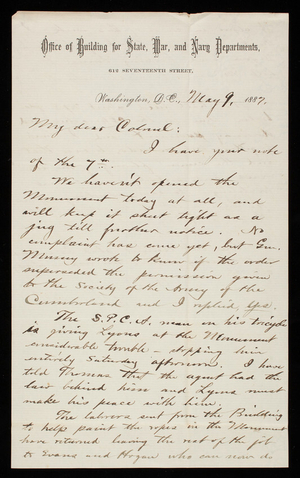 Office of Building for State, War, and Navy Departments,
612 SEVENTEENTH STREET,
Washington, D.C., May 9, 1887.
My dear Colonel:
I have your note
of the 7th.
We haven't opened the
Monument today at all, and
will keep it shut tight as a
jug till further notice. No
complaint has come yet, but Gen.
Mussey wrote to know if the order
superseded the permission given
to the Society of the Army of the
Cumberland and I replied yes.
The S.P.C.A. man on his tricycle
is giving Lyons at the Monument
considerable trouble - stopping him
entirely Saturday afternoon. I have
told Thomas that the agent had the
law behind him and Lyons must
make his peace with him.
The laborers sent from the Building
to help paint the ropes in the Monument
have returned leaving the rest of the job
to Evans and Hogan who can now do